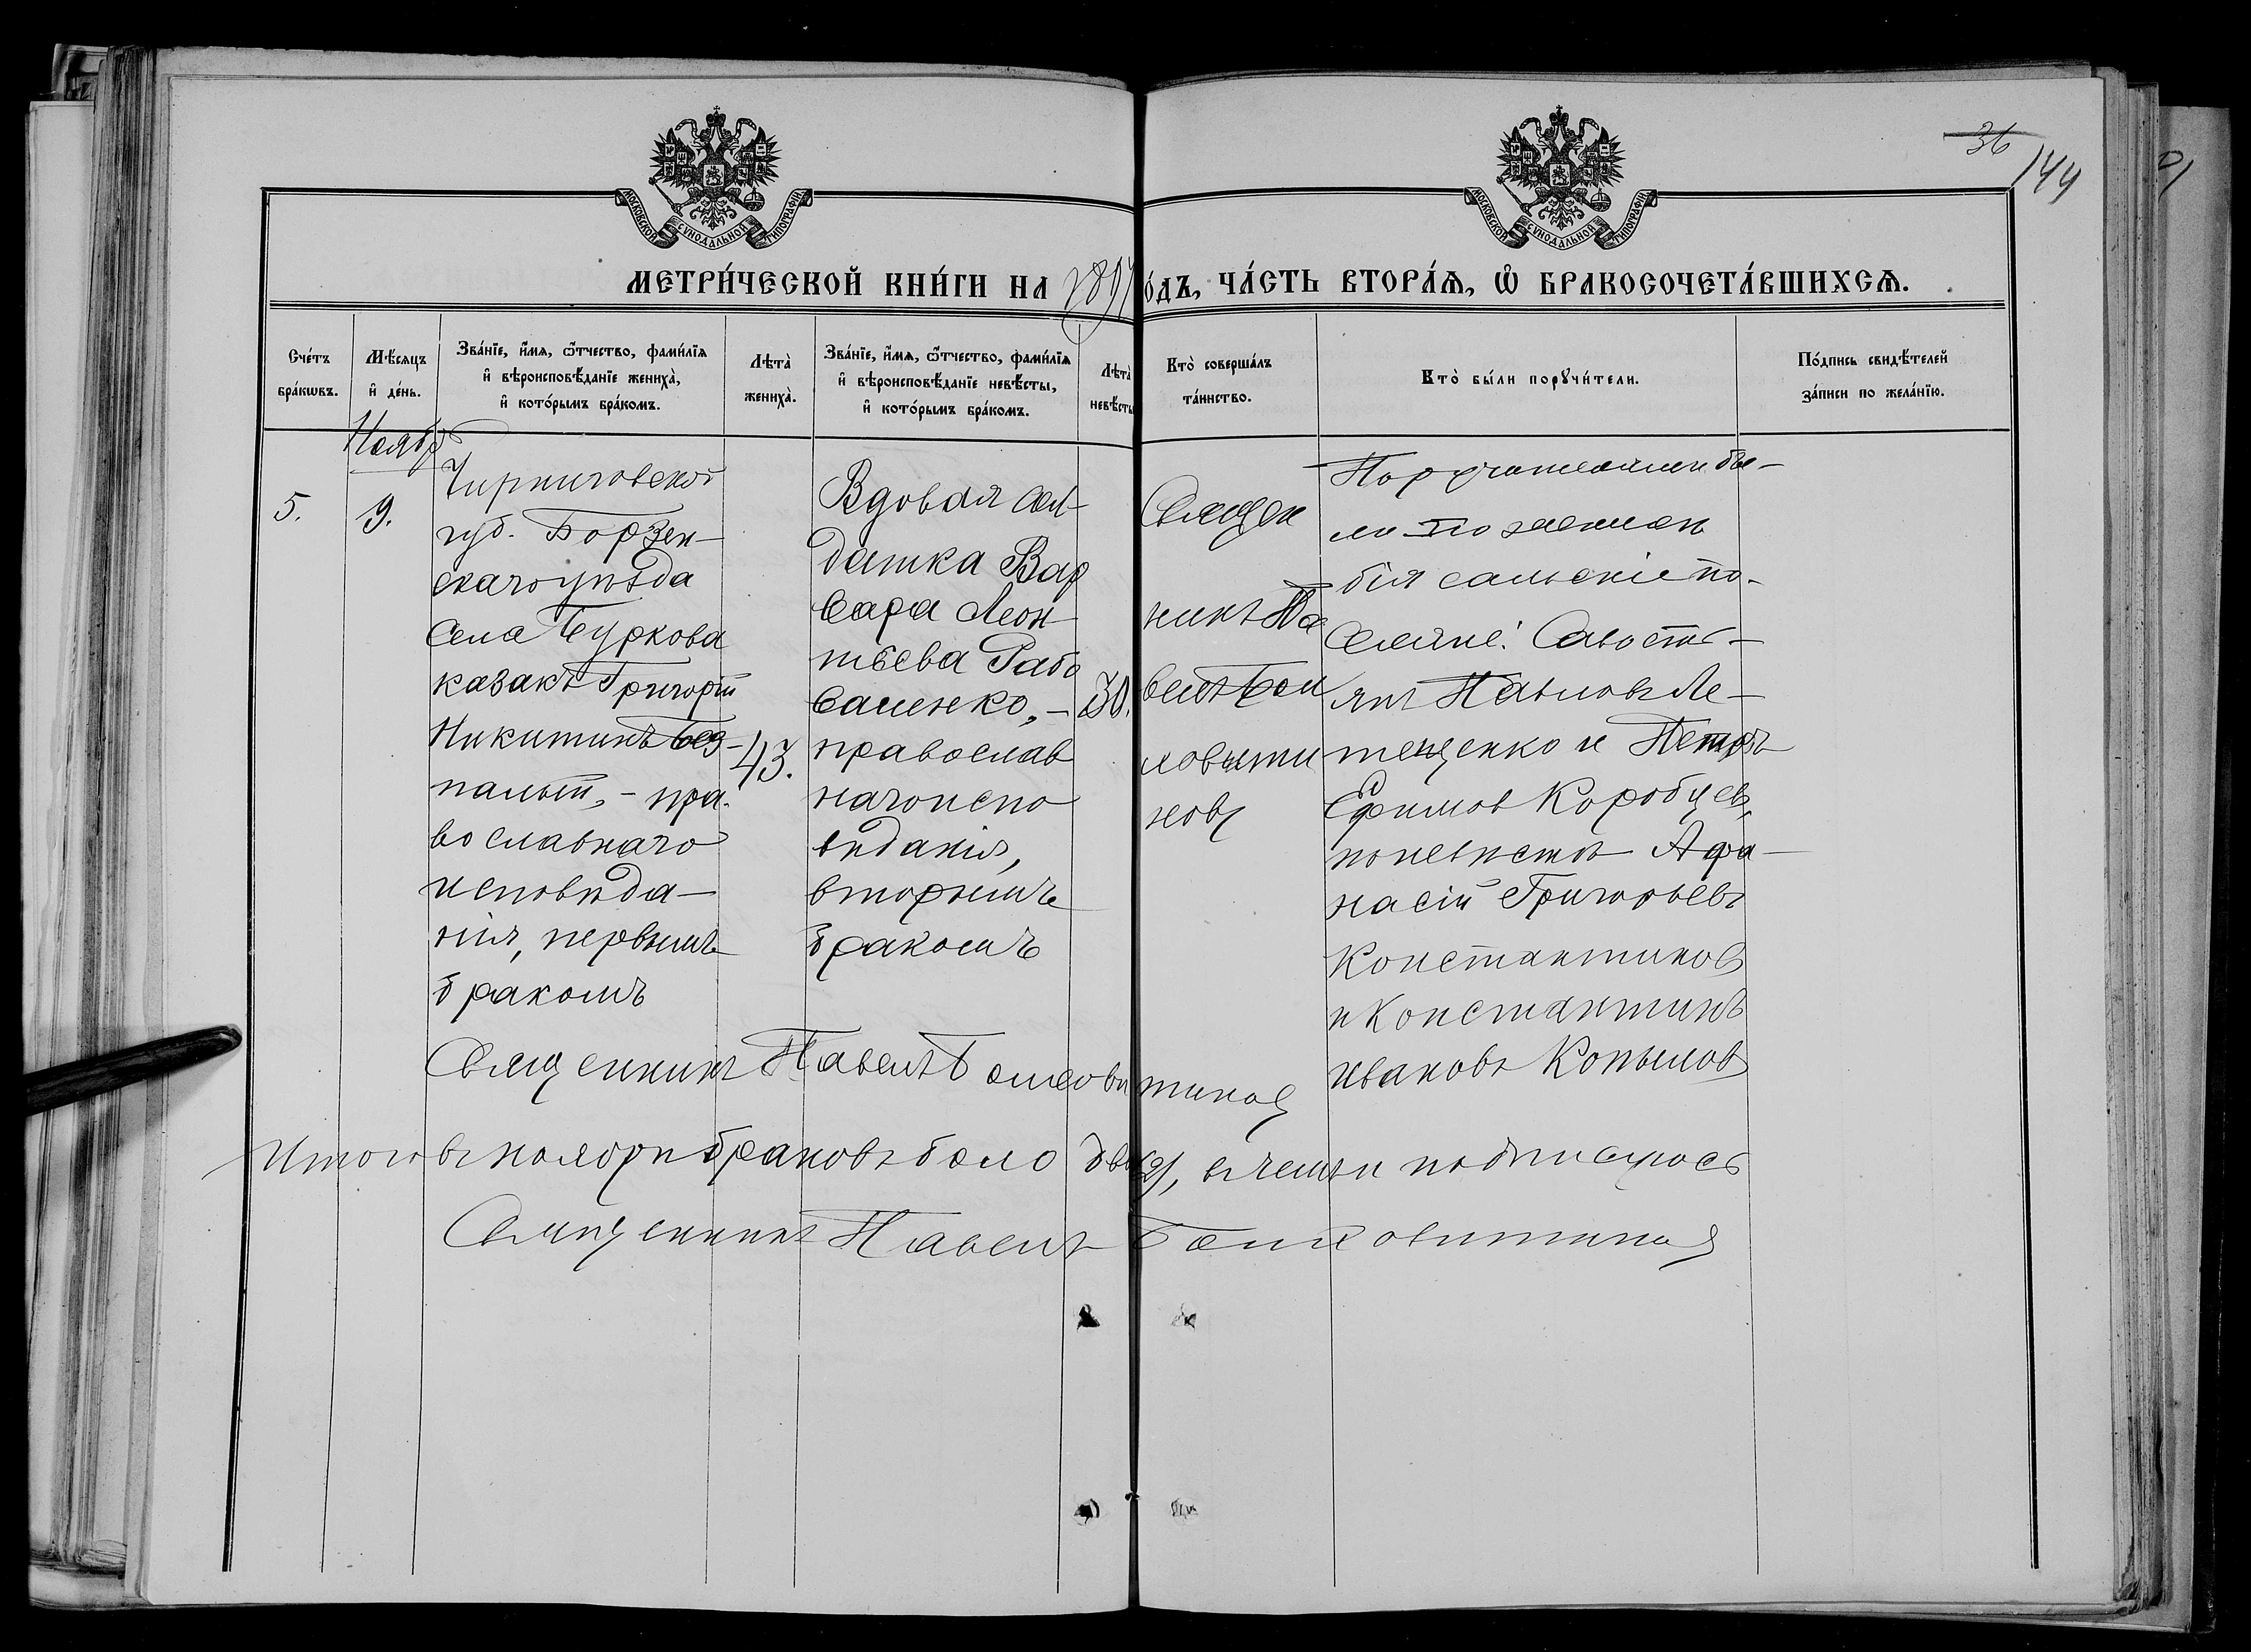 36
144
МОСКОВСКОЙ СѴНОДАЛЬНОЙ ТИПОГРАФІИ
МОСКОВСКОЙ СѴНОДАЛЬНОЙ ТИПОГРАФІИ
МЕТРИ́ЧЕСКОЙ КНИ́ГИ НА 1897 О́ДЪ, ЧА́СТЬ ВТОРА́Ѧ, Ѽ БРАКОСОЧЕТА́ВШИХСѦ.
Сче́тъ
бра́кѡвъ.
Мѣ́сяцъ
и҆ де́нь.
Зва́нїе, и҆́мя, ѻ҆́тчество, фами́лїя
и҆ вѣроисповѣ́данїе жениха̀,
и҆ кото́рымъ бра́комъ.
Лѣта̀
жениха̀.
Зва́нїе, и҆́мя, ѻ҆́тчество, фами́лїя
и҆ вѣроисповѣ́данїе невѣ́сты,
и҆ кото́рымъ бра́комъ.
Лѣта̀
невѣ́сты
Кто̀ соверша́лъ
та́инство.
Кто̀ бы́ли порꙋчи́тели.
По́дпись свидѣ́телей
за́писи по жела́нїю.
Ноябр
5.
9.
Чирниговской
губ. Борзен-
скаго уѣзда
села Буркова
казакъ Григорій
Никитинъ Без-
палый,- пра-
вославнаго
исповѣда-
нія, первымъ
бракомъ
43.
Вдовая сол-
датка Вар
вара Леон
тьева Рабо
саменко,-
православ
наго испо
вѣданія,
вторымъ
бракомъ
30.
Священ
никъ Па
велъ Бол
ховити
новъ
Поручителями бы-
ли по жених
бія сальскіе по-
селяне: Савость-
янъ Павловъ Ле-
тещенко и Петръ
Ефимов Коробцев,
по невѣстѣ Афа-
насій Григорьевъ
Константинов
и Константинъ
Ивановъ Копылов
Священникъ Павелъ Болховитинов
Итого въ ноябрѣ браковъ было два (2), въ чемъ и подписуюсь
Священникъ Павелъ Болховитинов